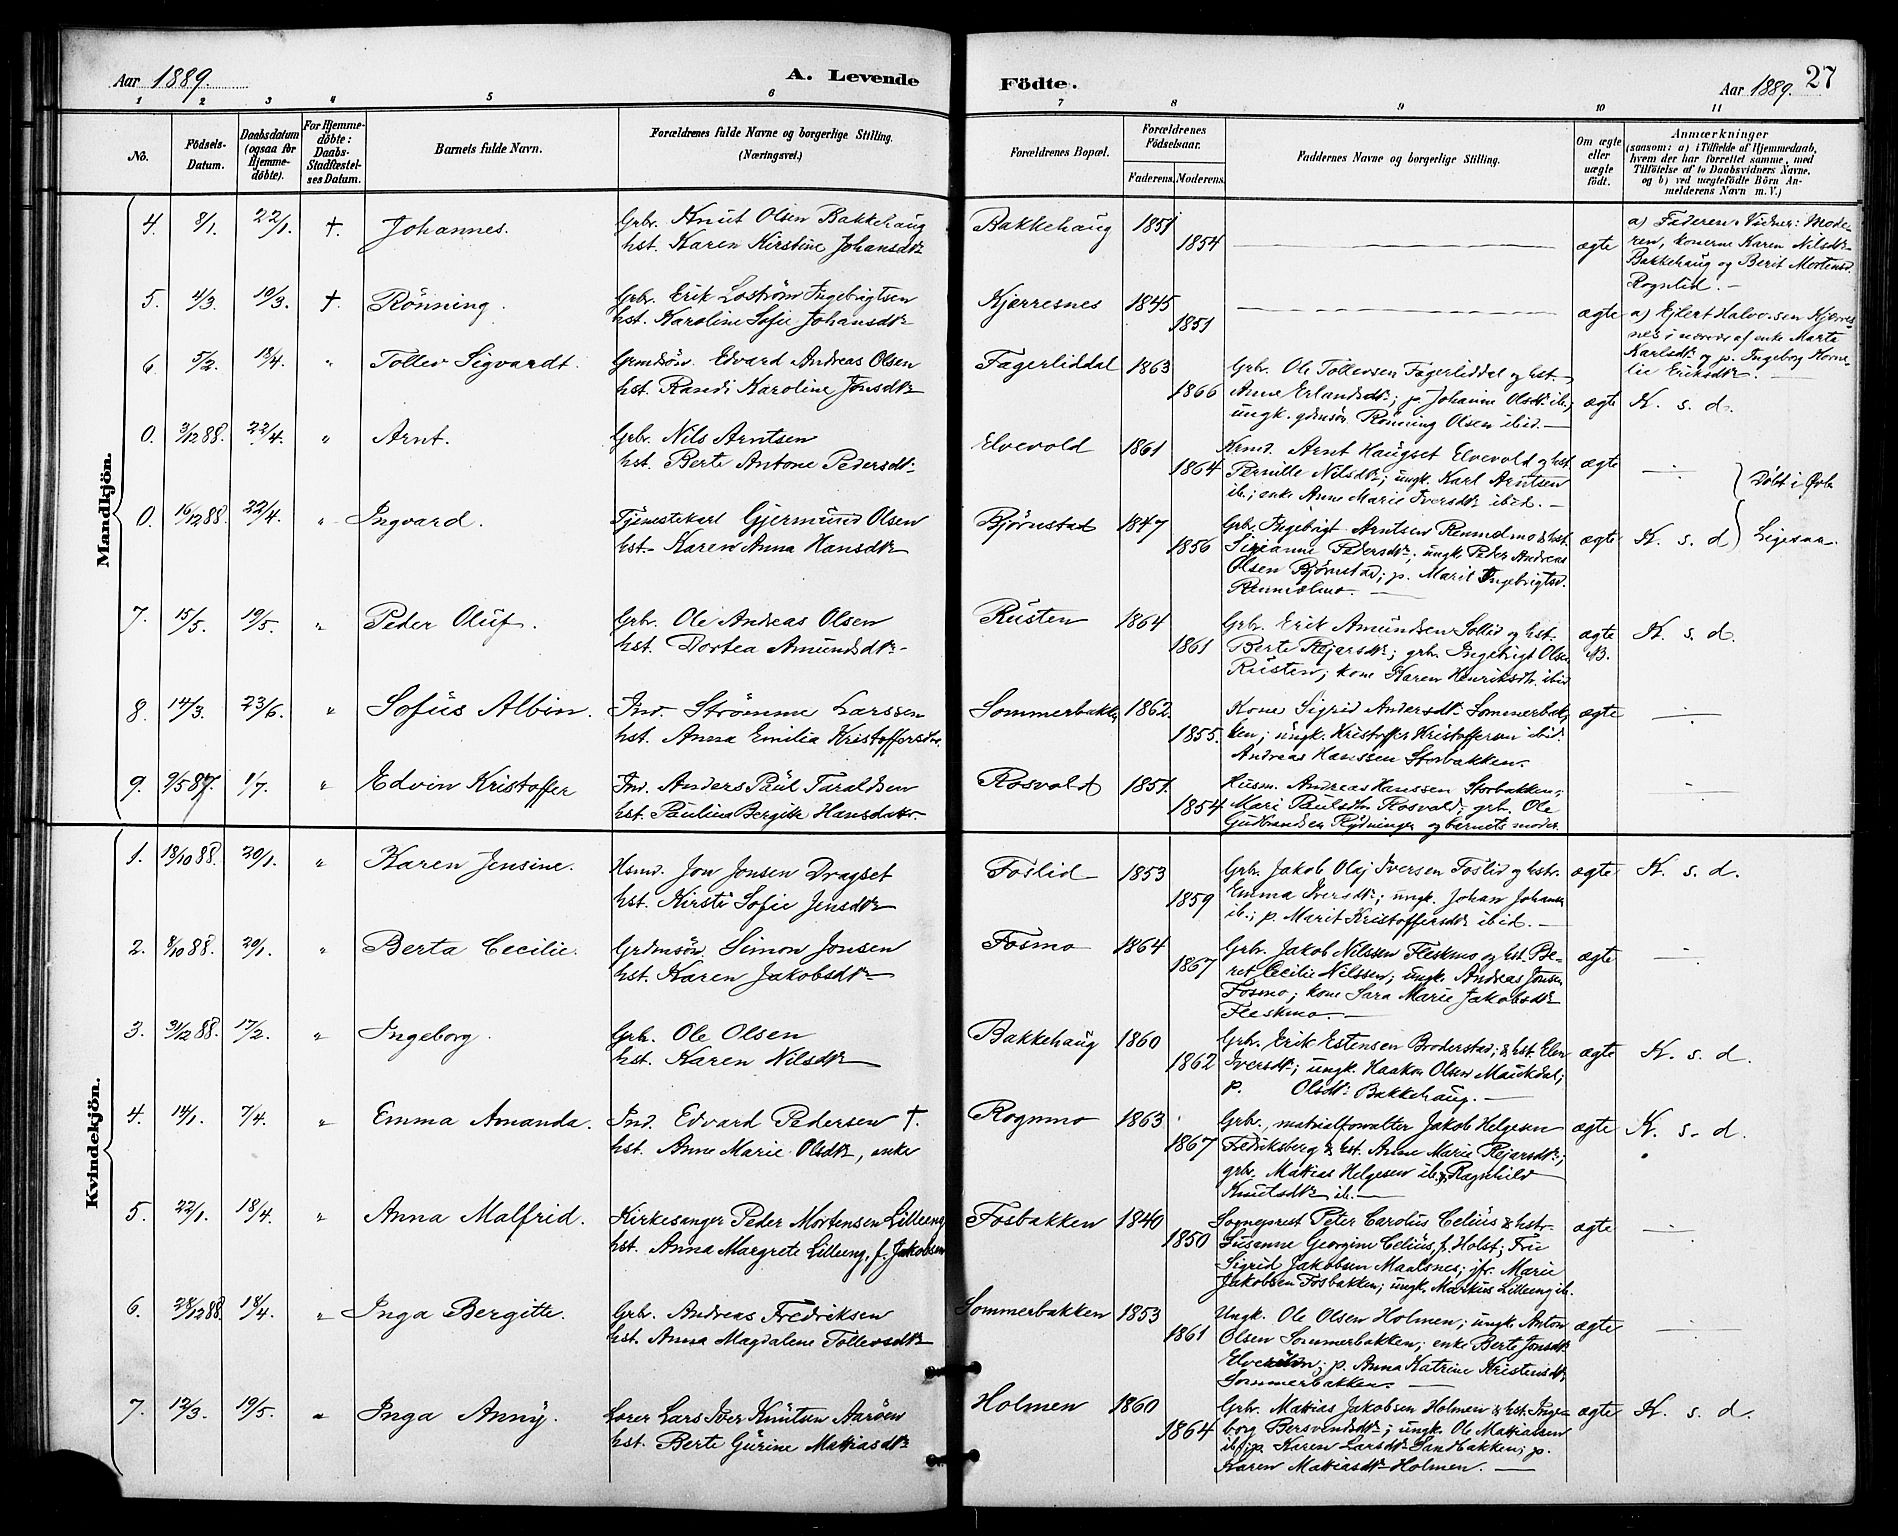 Aar 1889.
A. Levende
Födte.
Aar 1889. 27
1 2 3 4 5 6 7 8 9 10 11
No.
Födsels-
Datum.
Daabsdatum
(ogsaa for
Hjemme-
döbte).
For Hjemme-
döbte:
Daabs-
Stadfæstel-
ses Datum.
Barnets fulde Navn.
Forældrenes fulde Navne og borgerlige Stilling.
(Næringsvei.)
Forældrenes Bopæl.
Forældrenes
Födselsaar.
Faderens. Moderens.
Faddernes Navne og borgerlige Stilling.
Om ægte
eller
uægte
født.
Anmærkninger
(saasom: a) i Tilfælde af Hjemmedaab,
hvem der har forrettet samme, med
Tilföielse af to Daabsvidners Navne,
og b) ved uægtefödte Börn An-
melderens Navn m. V.)
Mandkjön.
4. 8/1. 22/1. †. Johannes.
Grbr. Knut Olsen Bakkehaug
hst. Karen Kirstine Johansdtr
Bakkehaug 1851 1854
ægte
a) Faderen. Vidner: Mode-
ren, konerne Karen Nilsdtr
Bakkehaug og Berit Mortensd.
Rognlid.
5. 4/3. 10/3. †. Rönning.
Grbr. Erik Loström Ingebrigtsen
hst. Karoline Sofie Johansdtr
Kjerresnes 1845 1851
ægte
a) Ejlert Halvorsen Kjerres-
nes i nærvær af enke Marta
Karlsdtr og p. Ingeborg Korne-
lie Eriksdtr.
6. 5/2. 18/4. " Tollev Sigvardt.
Grmdsön. Edvard Andreas Olsen
hst. Randi Karoline Jonsdtr
Fagerliddal 1863 1866
Grbr. Ole Tollevsen Fagerliddal og hst.
Anne Erlandsdtr; p. Johanne Olsdtr ib.;
ungk. gdmsön Rönning Olsen ibid.
ægte K. s. d.
0. 3/12 88. 22/4. " Arnt.
Grbr. Nils Arntsen
hst. Berte Antone Pedersdtr
Elvevold 1861 1864
Krmd. Arnt Haugset Elvevold og hst.
Pernille Nilsdtr; ungk. Karl Arntsen
ib.; enke Anne Marie Iversdtr ibid.
ægte
Döbt i Øvb
0. 16/12 88. 22/4. " Ingvard.
Tjenestekarl Gjermund Olsen
hst. Karen Anna Hansdtr
Bjørnstad 1847 1856
Grbr. Ingebrigt Arntsen Renmælmo & hst.
Sirianne Pedersdtr; ungk. Peder Andreas
Olsen Bjørnstad; p. Marit Ingebrigtsd.
Renmælmo.
ægte K. s. d. Ligesaa.
7. 15/5. 19/5. " Peder Oluf.
Grbr. Ole Andreas Olsen
hst. Dortea Amundsdtr
Rusten 1864 1861
Grbr. Erik Amundsen Sollid og hst.
Berte Rejersdtr; grbr. Ingebrigt Olsen
Rusten; kone Karen Henriksdtr. ibid
ægte K. s. d.
8. 14/3. 23/6. " Sofus Albin.
Ind. Strömme Larssen
hst. Anna Emilia Kristoffersdtr.
Sommerbakken 1862. 1855.
Kone Sigrid Andersdtr Sommerbak-
ken; ungk. Kristoffer Kristoffersen ibid.
Andreas Hanssen Storbakken.
ægte
9. 9/5 87. 1/7. " Edvin Kristoffer
Ind. Anders Paul Taraldsen
hst. Pauline Bergitte Hansdatr.
Rosvold 1851. 1854
Husm. Andreas Hanssen Storbakken;
Mari Paulsdtr Rosvold; grbr. Ole
Gudbrandsen Rydningen og barnets moder.
Kvindekjön.
1. 18/10 88. 20/1. " Karen Jensine.
Hsmd. Jon Jonsen Dragset
hst. Kirsti Sofie Jensdtr
Foslid 1853 1859
Grbr. Jakob Olaj Iversen Foslid og hstr.
Emma Iversdtr; ungk. Johan Johansen
ib.; p. Marit Kristoffersdtr ibid.
ægte K. s. d.
2. 8/10 88. 20/1. " Berta Cecilie.
Grdmsön. Simon Jonsen
hst. Karen Jakobsdtr
Fosmo 1864 1867
Grbr. Jakob Nilssen Fleskmo og hst. Be-
ret Cecilie Nilssen; ungk. Andreas Jonsen
Fosmo; kone Sara Marie Jakobsdtr
Fleskmo.
ægte
3. 31/12 88. 17/2. " Ingeborg.
Grbr. Ole Olsen
hst. Karen Nilsdtr
Bakkehaug 1860 1862
Grbr. Erik Estensen Broderstad; & hst. Elen
Iversdtr; ungk. Haakon Olsen Maukdal;
p. Olsdtr Bakkehaug.
ægte K. s. d.
4. 14/1. 7/4. " Emma Amanda.
Ind. Edvard Pedersen †.
hst. Anne Marie Olsdtr, enke
Rognmo 1863 1867
Grbr., matrialforvalter Jakob Helgesen
Fredriksberg & hst. Anne Marie Rejersdtr;
grbr. Matias Helgesen ib.; Ragnhild
Knutsdtr ib.
ægte K. s. d.
5. 22/1. 18/4. " Anna Malfrid.
Kirkesanger Peder Mortensen Lilleeng
hst. Anna Margrete Lilleeng, f. Jakobsen
Fosbakken 1840 1850
Sogneprest Peter Carolus Celius & hstr
Susanne Georgine Celius, f. Holst; Fru
Sigrid Jakobsen Maalsnes; jfr. Marie
Jakobsen Fosbakken; ungk. Markus Lilleeng ib.
ægte
6. 28/12 88. 18/4. " Inga Bergitte.
Grbr. Andreas Fredriksen
hst. Anna Magdalene Tollevsdtr
Sommerbakken 1853 1861
Ungk. Ole Olsen Holmen; ungk. Anton
Olsen Sommerbakken; enke Berte Jonsdtr
p. Anna Katrine Kristensdtr
Sommerbakken.
ægte
7. 12/3. 19/5. " Inga Anny.
Lærer Lars Iver Knutsen Aaröen
hst. Berte Gurine Matiasdtr
Holmen 1860 1864
Grbr. Matias Jakobsen Holmen & hst. Inge-
borg Bersvendsdtr; ungk. Ole Matiassen
ib.; p. Karen Larsdtr Sandbakken; p.
Karen Matiasdtr Holmen.
ægte K. s. d.